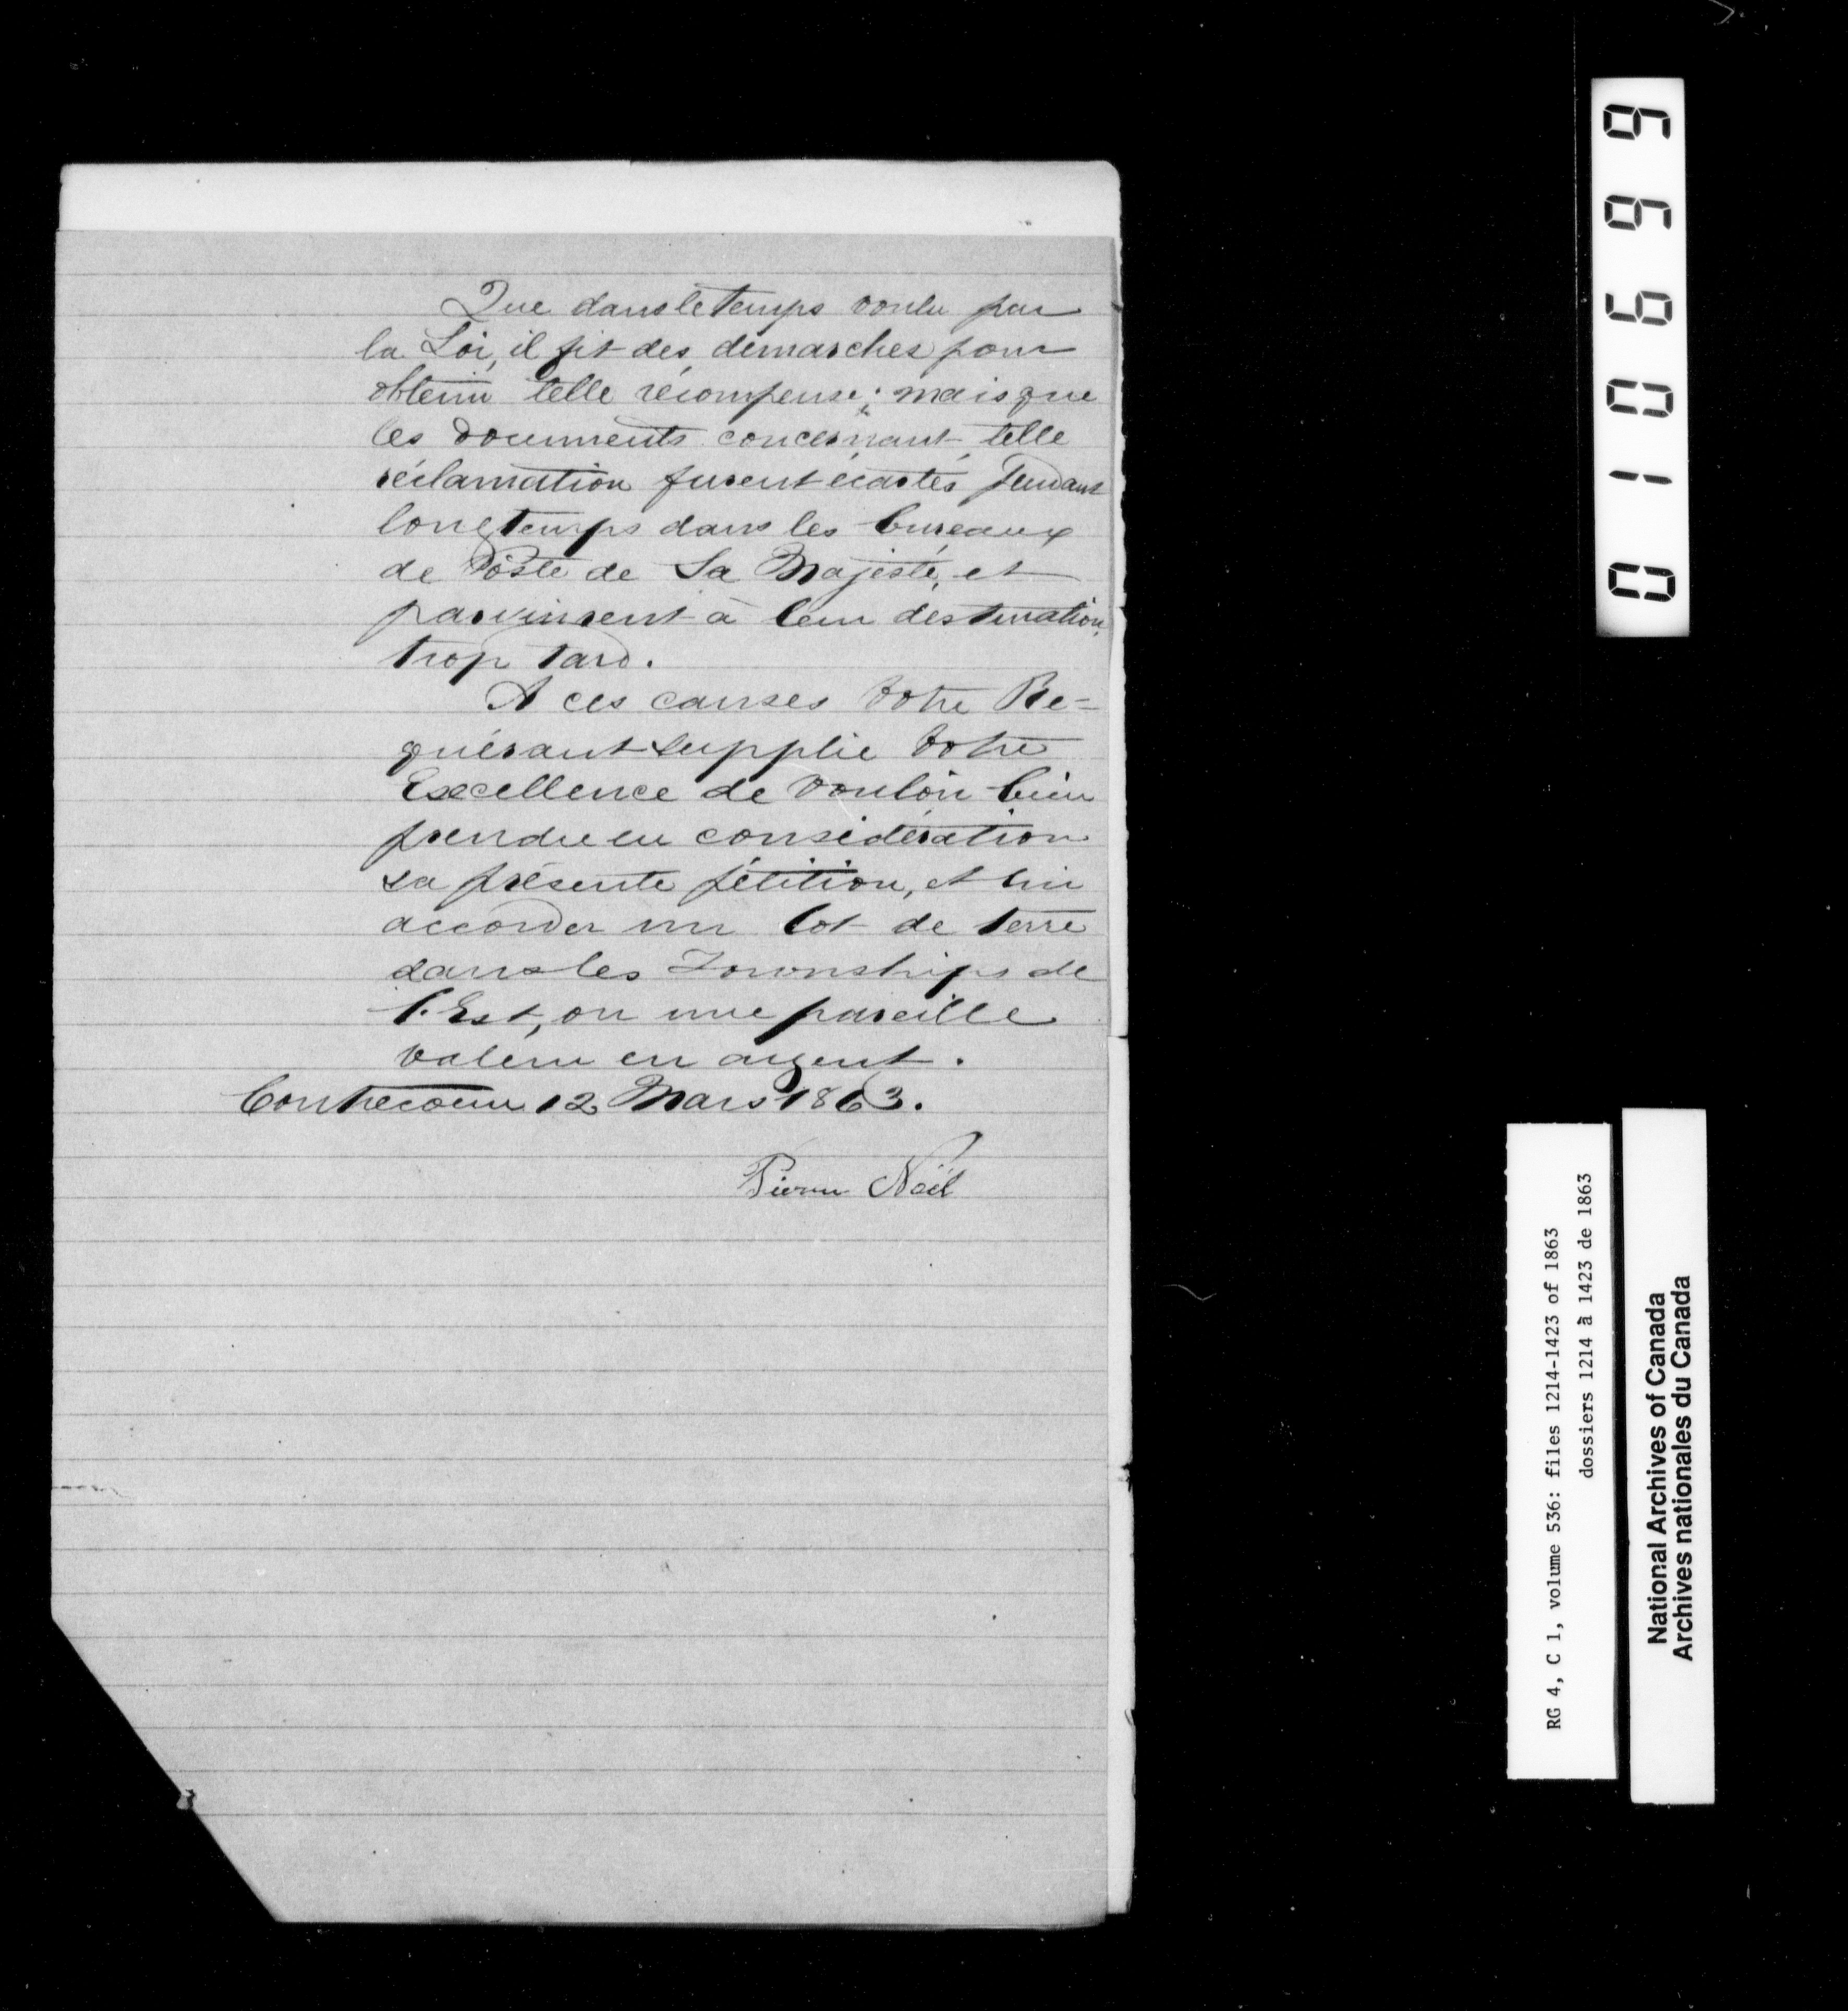 Que dans le temps voulu par
la Loi, il fit des démarches pour
obtenir telle récompense; mais que
les documents concernant telle
réclamation furent écartés pendant
longtemps dans les bureaux
de Poste de Sa Majesté, et
parvinrent à leur destination,
trop tard.
A ces causes Votre Re=
quérant supplie Votre
Excellence de vouloir bien
prendre en considération
sa présente pétition, et lui
accorder un lot de terre
dans les Townships de
l'Est, ou une pareille
valeur en argent.
Contrecoeur 12 Mars 1863.
Pierre Noël
010699
RG 4, C 1, volume 536: files 1214-1423 of 1863
dossiers 1214 à 1423 de 1863
National Archives of Canada
Archives nationales du Canada